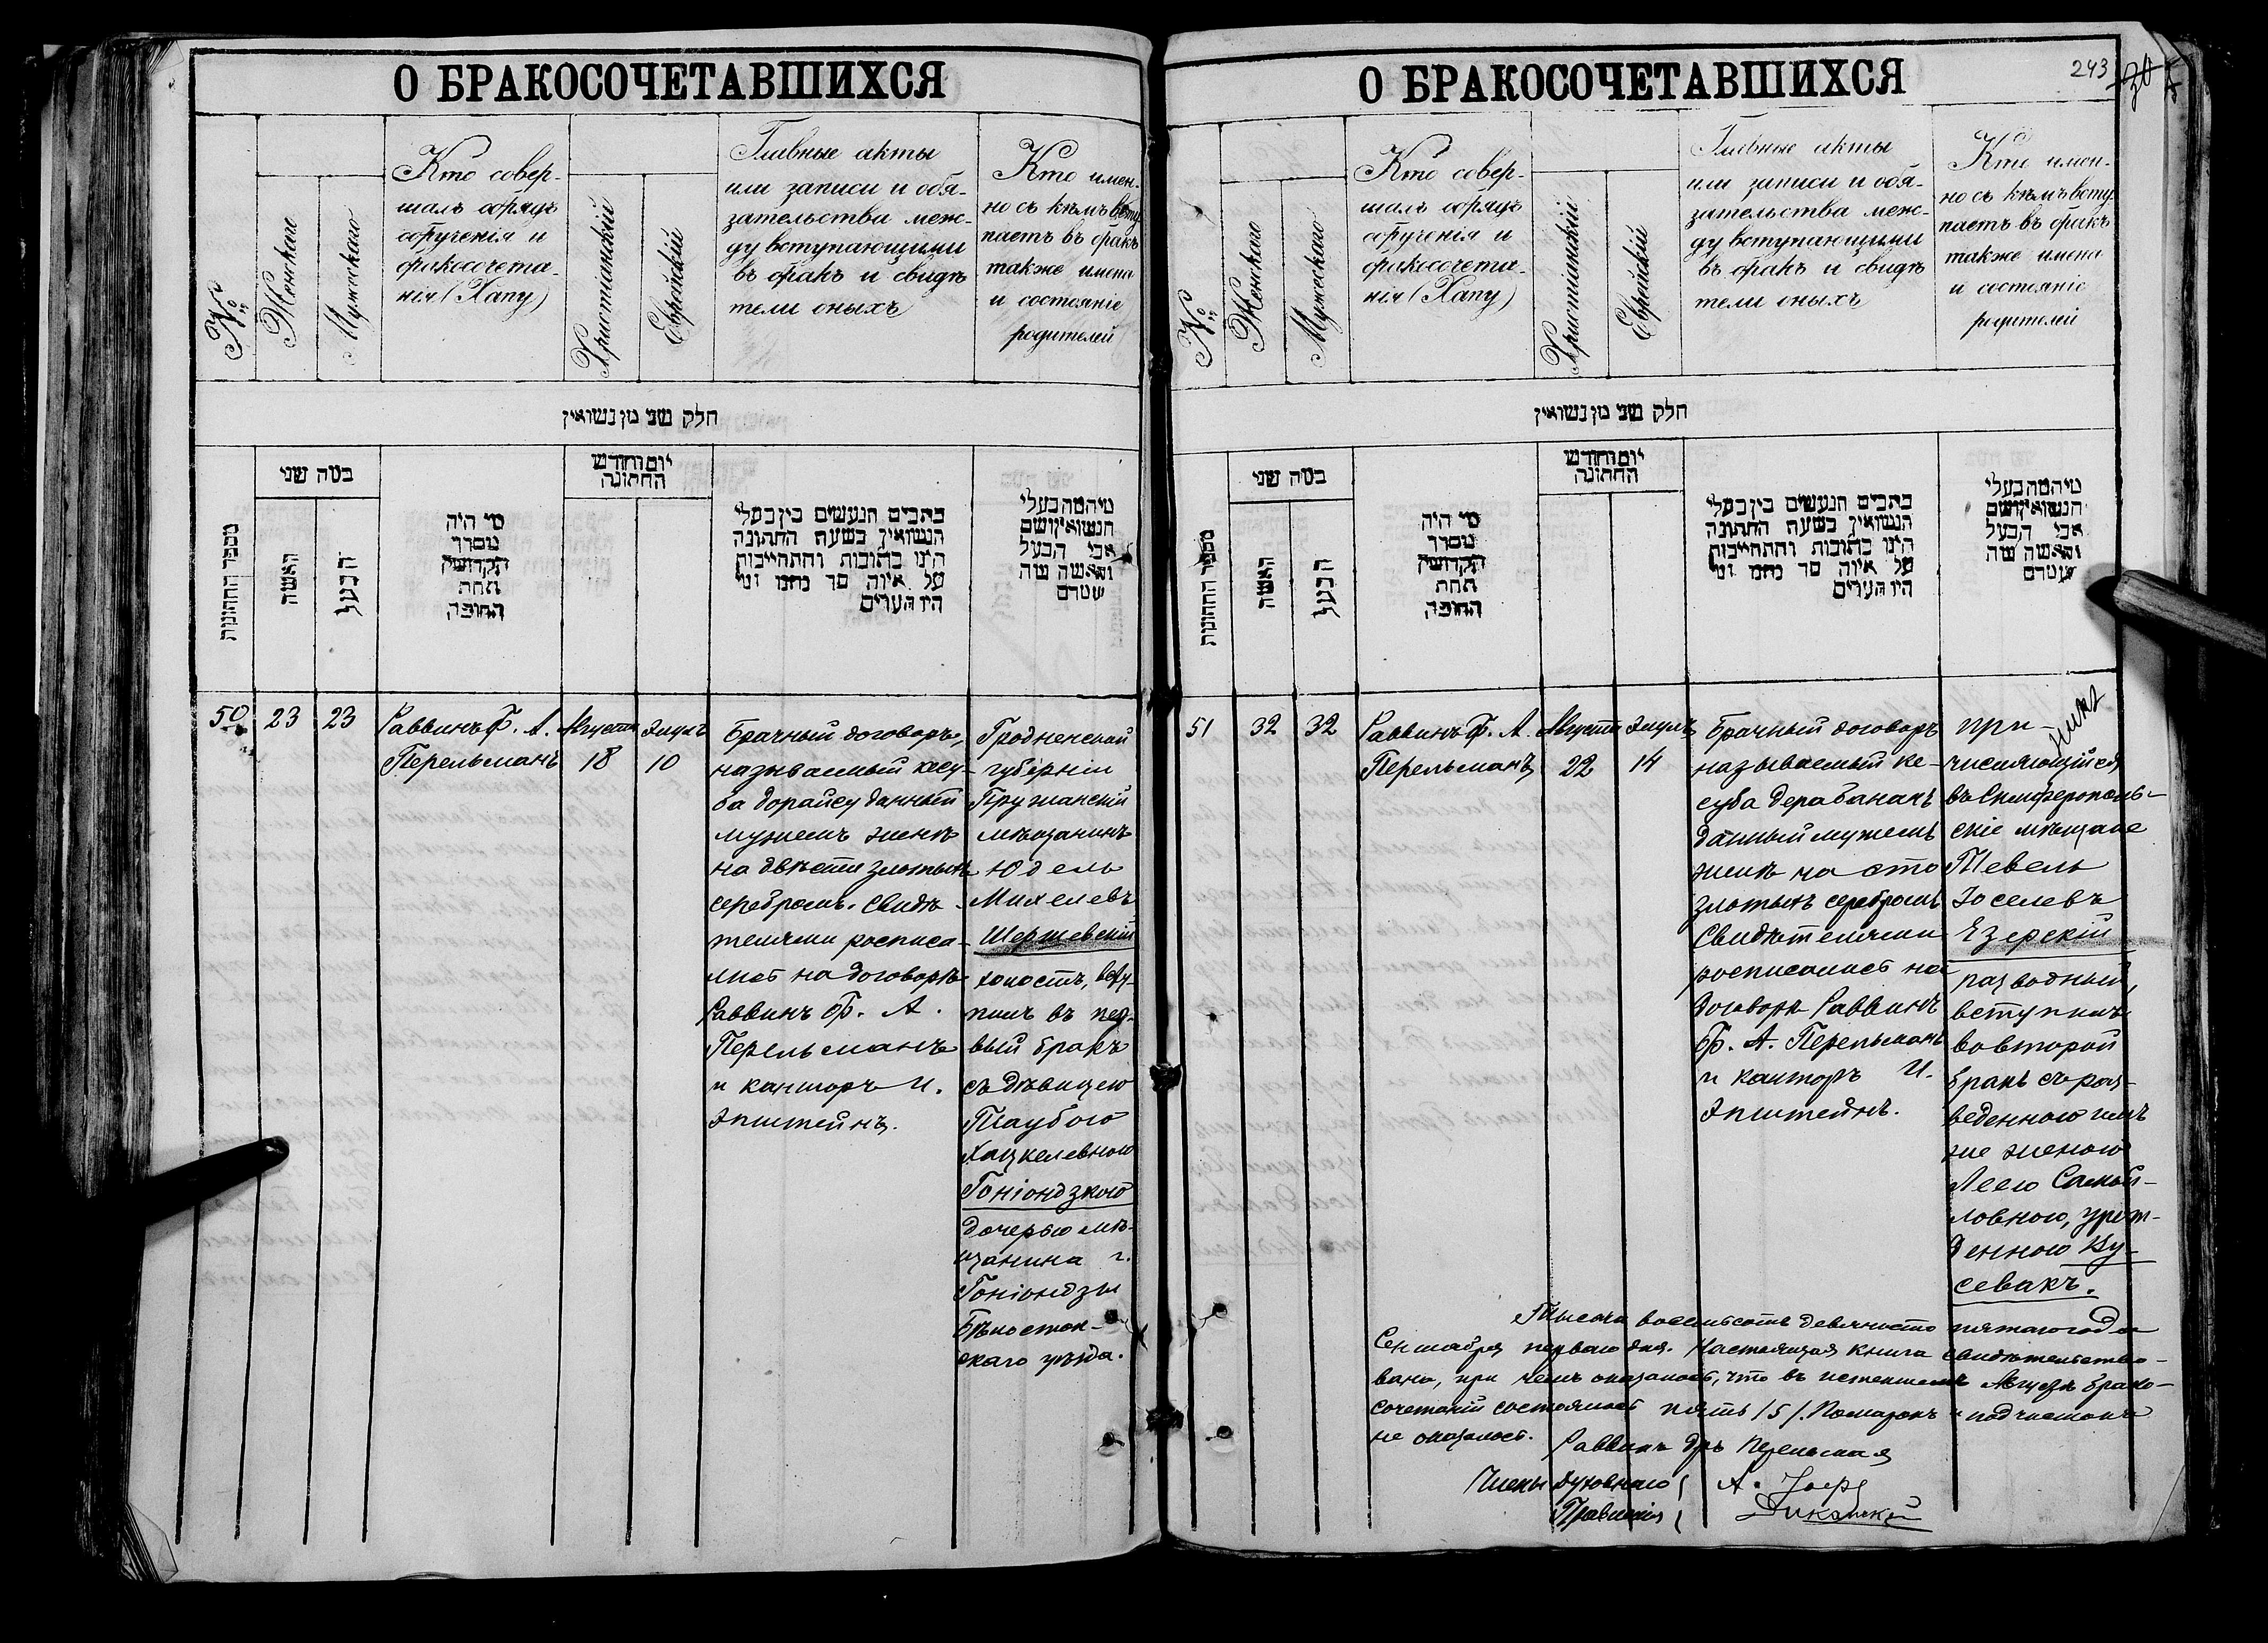 О БРАКОСОЧЕТАВШИХСЯ
№
Женскаго
Мужескаго
Кто совер-
шалъ обрядъ
обрученія и
бракосочета-
нія (Хапу)
Христіанскій
Еврейскій
Главные акты
или записи и обя-
зательства меж-
ду вступающими
въ бракъ и свидѣ
тели оныхъ
Кто имен-
но съ кѣмъ всту
паетъ въ бракъ
также имена
и состояніе
родителей
חלק שני מן נשואין
מספר החתונות
במה שני
האשה
הבעל
מי היה
מסדר
הקדושין
תחת
החופה
יום וחודש
החתונה
כתבים הנעשים בין בעלי
הנשואין בשעת החתונה
היינו כתובות והתחייבות
על איזה סך נחמו ומי
היו העדים
מי המה בעלי
הנשואין ושם
אבי הבעל
והאשה
50
23
23
Раввинъ Ф. А.
Перельманъ
Августа
18
Элулъ
10
Брачный договоръ,
называемый кесу-
ба дорайсу данный
мужемъ женѣ
на двѣсти злотыхъ
серебромъ. Свидѣ-
телями росписа-
лись на договорѣ
Раввинъ Ф. А.
Перельманъ
и канторъ И.
Эпштейнъ.
Гродненской
губерніи
Пружанскій
мѣщанинъ
Юдель
Михелевъ
Шерешевскій
холостъ, всту-
пилъ въ пер-
вый бракъ
съ дѣвицею
Таубою
Хацкелевною
Гоніондзкою
дочерью мѣ-
щанина г.
Гоніондзы
Бѣлосток-
скаго уѣзда.
О БРАКОСОЧЕТАВШИХСЯ
243
№
Женскаго
Мужескаго
Кто совер-
шалъ обрядъ
обрученія и
бракосочета-
нія (Хапу)
Христіанскій
Еврейскій
Главные акты
или записи и обя-
зательства меж-
ду вступающими
въ бракъ и свидѣ
тели оныхъ
Кто имен-
но съ кѣмъ всту-
паетъ въ бракъ
также имена
и состояніе
родителей
חלק שני מן נשואין
מספר החתונות
במה שני
האשה
הבעל
מי היה
מסדר
הקדושין
תחת
החופה
יום וחודש
החתונה
כתבים הנעשים בין בעלי
הנשואין בשעת החתונה
היינו כתובות והתחייבות
על איזה סך נחמו ומי
היו העדים
מי המה בעלי
הנשואין ושם
אבי הבעל
והאשה
51
32
32
Раввинъ Ф. А.
Перельманъ
Августа
22
Элулъ
14
Брачный договоръ
называемый ке-
суба дерабананъ
данный мужемъ
женѣ на сто
злотыхъ серебромъ
Свидѣтелями
росписались на
договорѣ Раввинъ
Ф. А. Перельманъ
и канторъ И.
Эпштейнъ.
при-
числяющійся
въ Симферополь-
скіе мѣщане
Тевель
Іоселевъ
Езерскій
разводный,
вступилъ
во второй
бракъ съ раз-
веденною имъ
же женою
Леею Самой-
ловною, урож-
денною Ку-
севакъ.
Тысяча восемьсотъ девяносто пятаго года
Сентября перваго дня. Настоящая книга свидѣтельство-
вана, при чемъ оказалось, что въ истекшемъ Августѣ брако-
сочетаній состоялось пять /5/. Помарокъ и подчистокъ
не оказалось.
Раввинъ дръ Перельманъ
Члены духовнаго
Правленія
А.